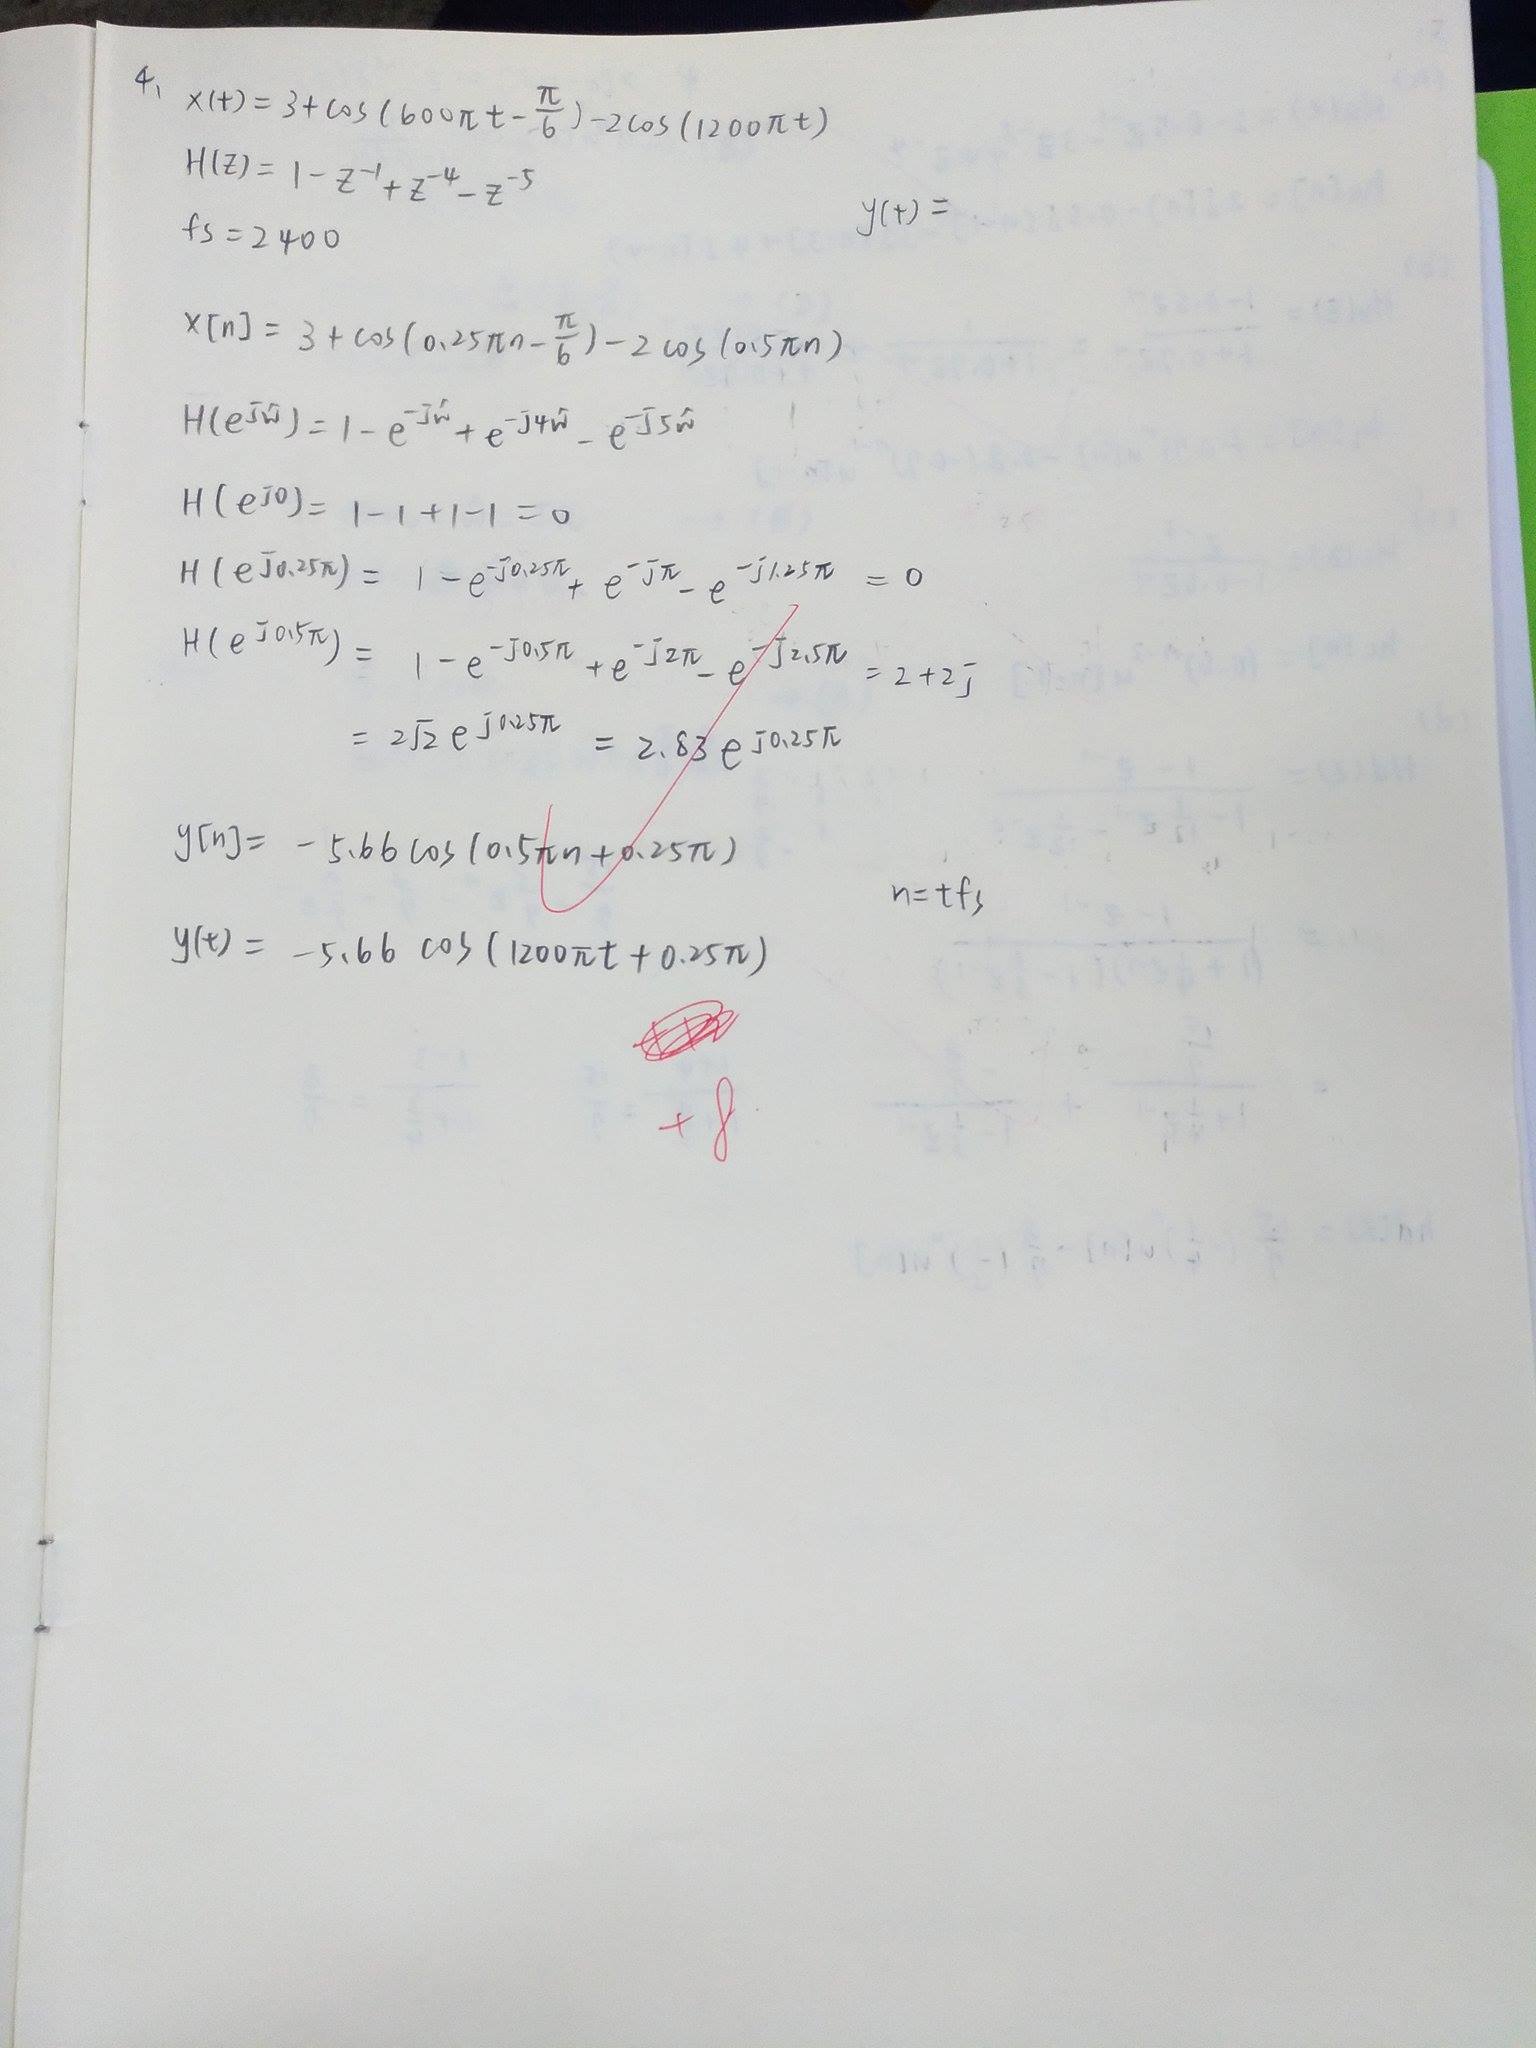 4.
x(t) = 3 + cos(600πt - π/6) - 2cos(1200πt)
H(z) = 1 - z⁻¹ + z⁻⁴ - z⁻⁵
y(t) =
fs = 2400
x[n] = 3 + cos(0.25πn - π/6) - 2cos(0.5πn)
H(e^jŵ) = 1 - e^-jŵ + e^-j4ŵ - e^-j5ŵ
H(e^j0) = 1 - 1 + 1 - 1 = 0
H(e^j0.25π) = 1 - e^-j0.25π + e^-jπ - e^-j1.25π = 0
H(e^j0.5π) = 1 - e^-j0.5π + e^-j2π - e^-j2.5π = 2 + 2j
= 2√2 e^j0.25π = 2.83 e^j0.25π
y[n] = -5.66 cos(0.5πn + 0.25π)
n = tfs
y(t) = -5.66 cos(1200πt + 0.25π)
+8